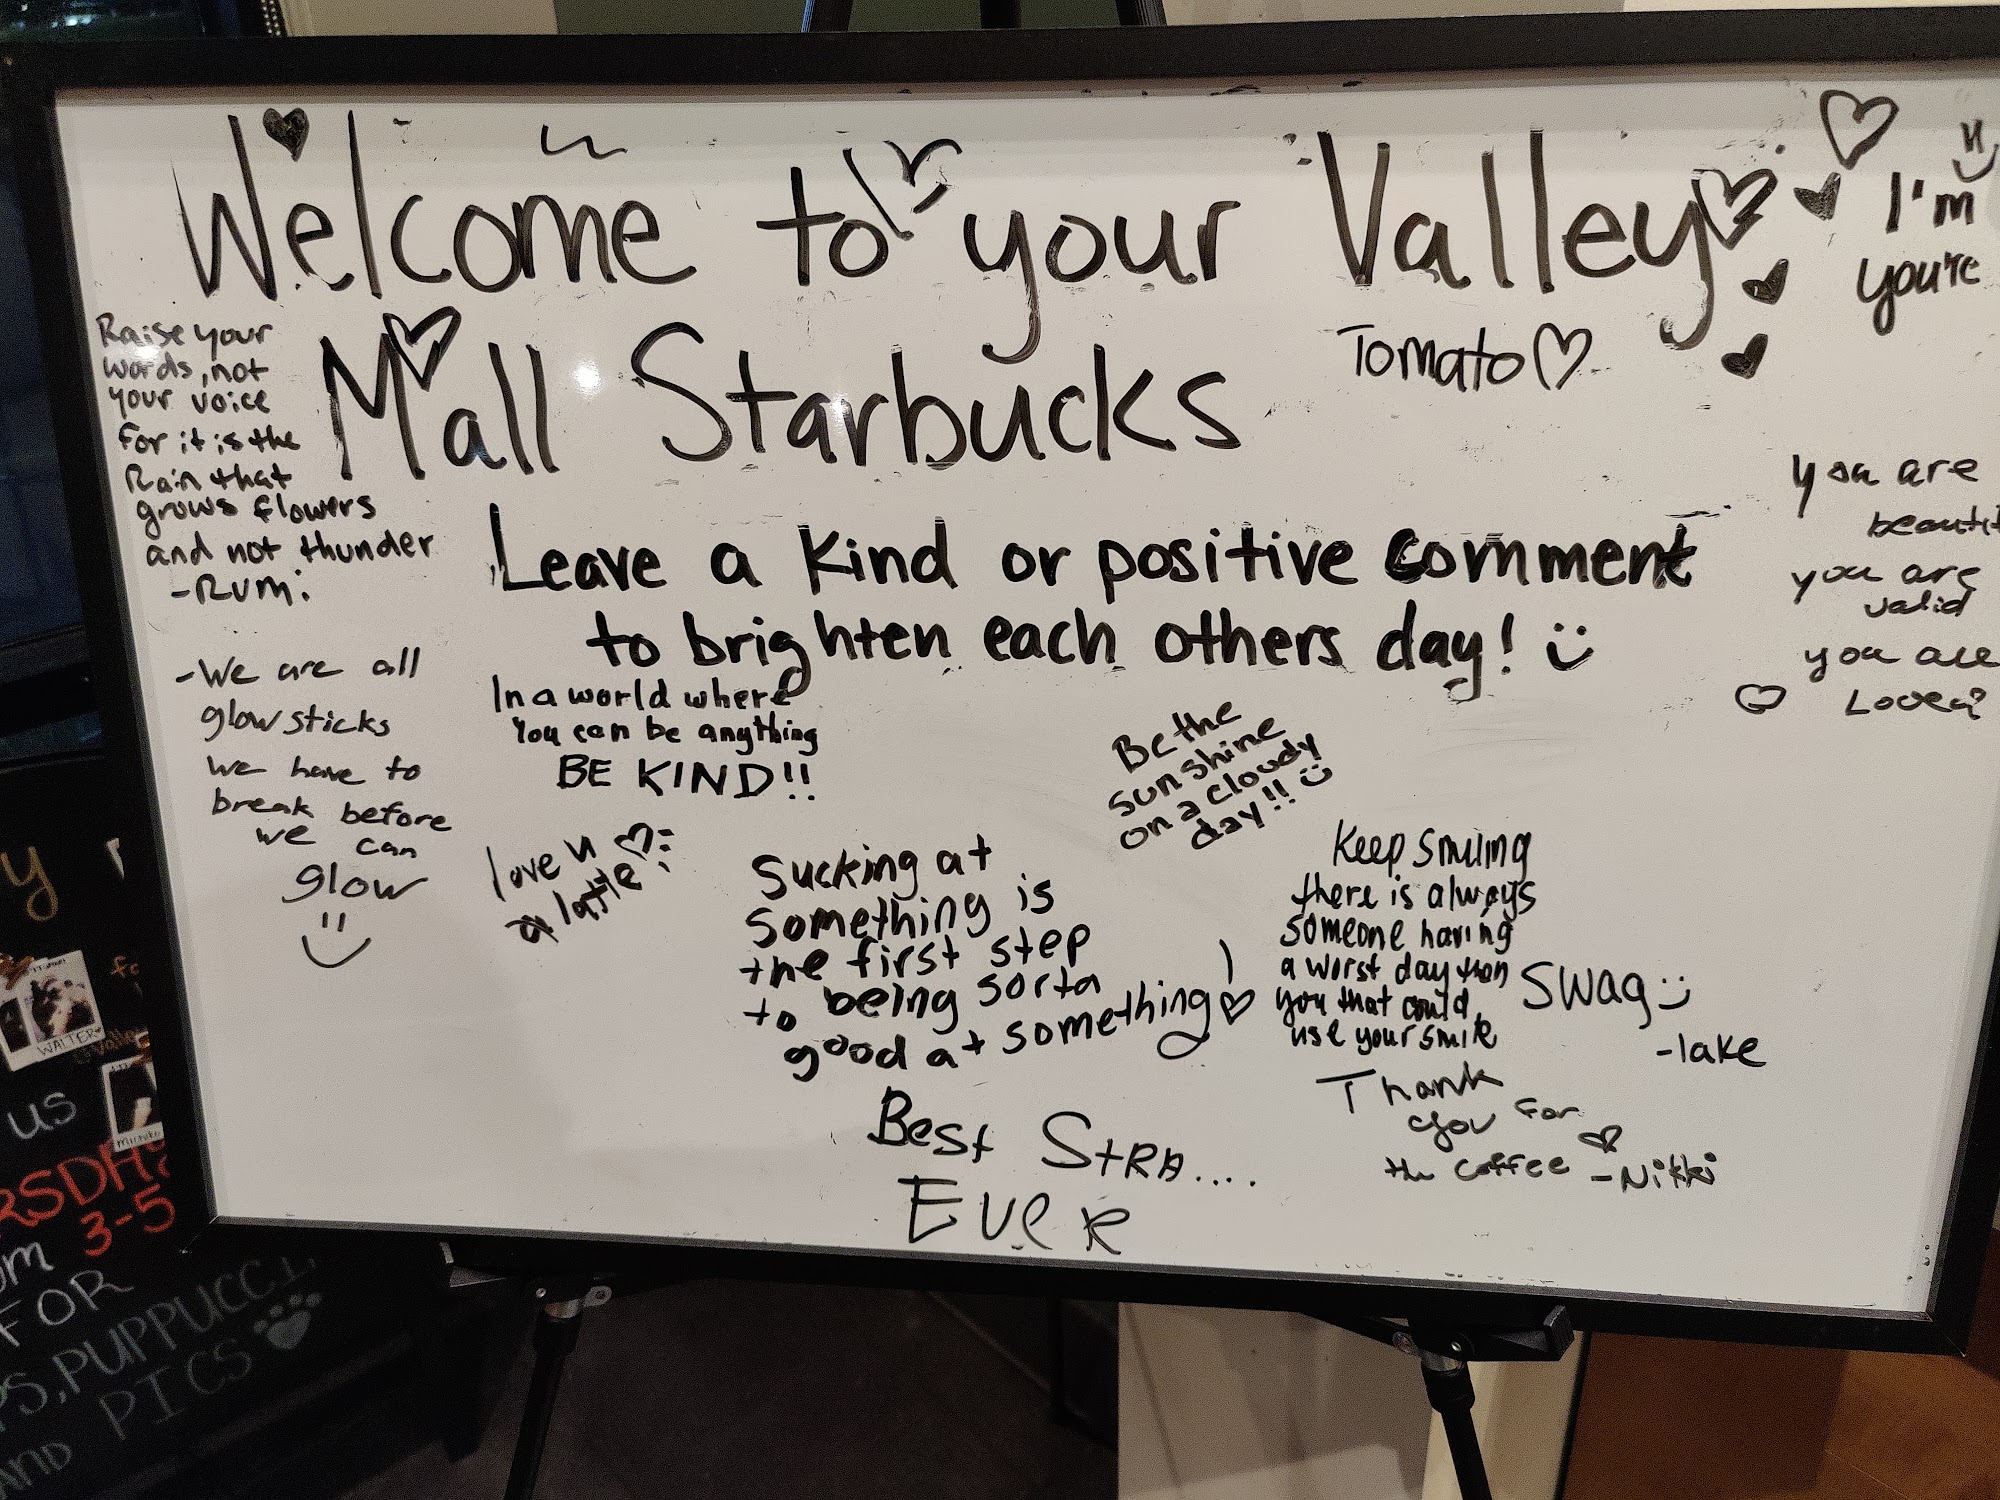 Welcome to your Valley
Mall Starbucks
Tomato
I'm
you're
Leave a kind or positive comment
to brighten each others day!
Raise your
words, not
your voice
for it is the
Rain that
grows flowers
and not thunder
-Rumi
-We are all
glow sticks
we have to
break before
we can
glow
In a world where
You can be anything
BE KIND!!
love u
a latte
Be the
sunshine
on a cloudy
day!!
you are
you are
valid
you are
Loved
Sucking at
something is
the first step
to being sorta
good at something!
Keep smiling
there is always
someone having
a worst day then
you that could
use your smile
SWAG
-lake
Thank
you for
the coffee
-Nikki
Best
Ever
WALTER
us
3-5
FOR
PICS
AND